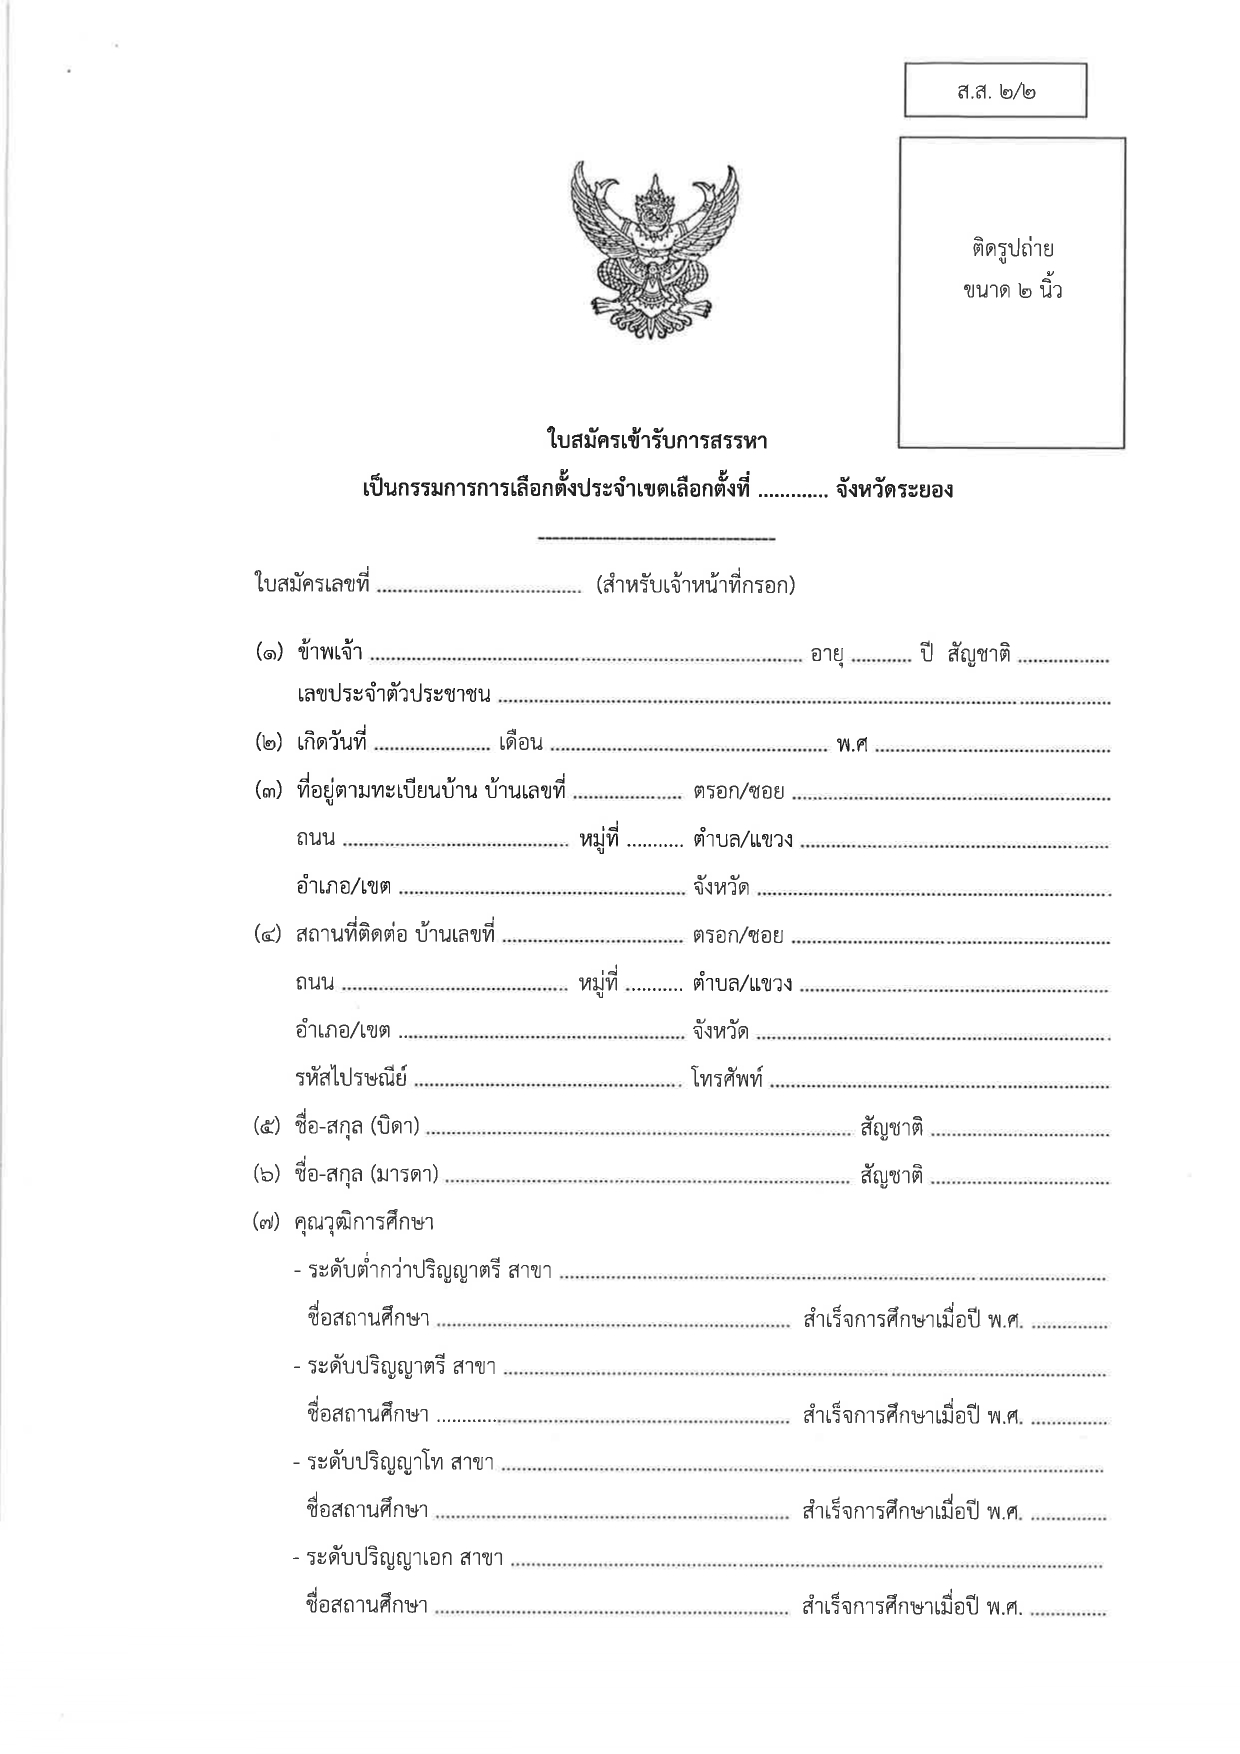 ส.ส. ๒/๒
ติดรูปถ่าย
ขนาด ๒ นิ้ว
ใบสมัครเข้ารับการสรรหา
เป็นกรรมการการเลือกตั้งประจำเขตเลือกตั้งที่ ............. จังหวัดระยอง
---------------------------------
ใบสมัครเลขที่ ........................................ (สำหรับเจ้าหน้าที่กรอก)
(๑) ข้าพเจ้า .................................................................................... อายุ ........... ปี สัญชาติ ..................
เลขประจำตัวประชาชน ........................................................................................................................
(๒) เกิดวันที่ ...................... เดือน ...................................................... พ.ศ ..............................................
(๓) ที่อยู่ตามทะเบียนบ้าน บ้านเลขที่ ..................... ตรอก/ซอย ..............................................................
ถนน ............................................ หมู่ที่ ........... ตำบล/แขวง ............................................................
อำเภอ/เขต ........................................................ จังหวัด .....................................................................
(๔) สถานที่ติดต่อ บ้านเลขที่ ................................... ตรอก/ซอย ..............................................................
ถนน ............................................ หมู่ที่ ........... ตำบล/แขวง ............................................................
อำเภอ/เขต ........................................................ จังหวัด .....................................................................
รหัสไปรษณีย์ .................................................... โทรศัพท์ ..................................................................
(๕) ชื่อ-สกุล (บิดา) .................................................................................. สัญชาติ ...................................
(๖) ชื่อ-สกุล (มารดา) ............................................................................... สัญชาติ ...................................
(๗) คุณวุฒิการศึกษา
- ระดับต่ำกว่าปริญญาตรี สาขา ..........................................................................................................
ชื่อสถานศึกษา ..................................................................... สำเร็จการศึกษาเมื่อปี พ.ศ. ...............
- ระดับปริญญาตรี สาขา .....................................................................................................................
ชื่อสถานศึกษา ..................................................................... สำเร็จการศึกษาเมื่อปี พ.ศ. ...............
- ระดับปริญญาโท สาขา .....................................................................................................................
ชื่อสถานศึกษา ..................................................................... สำเร็จการศึกษาเมื่อปี พ.ศ. ...............
- ระดับปริญญาเอก สาขา ...................................................................................................................
ชื่อสถานศึกษา ..................................................................... สำเร็จการศึกษาเมื่อปี พ.ศ. ...............